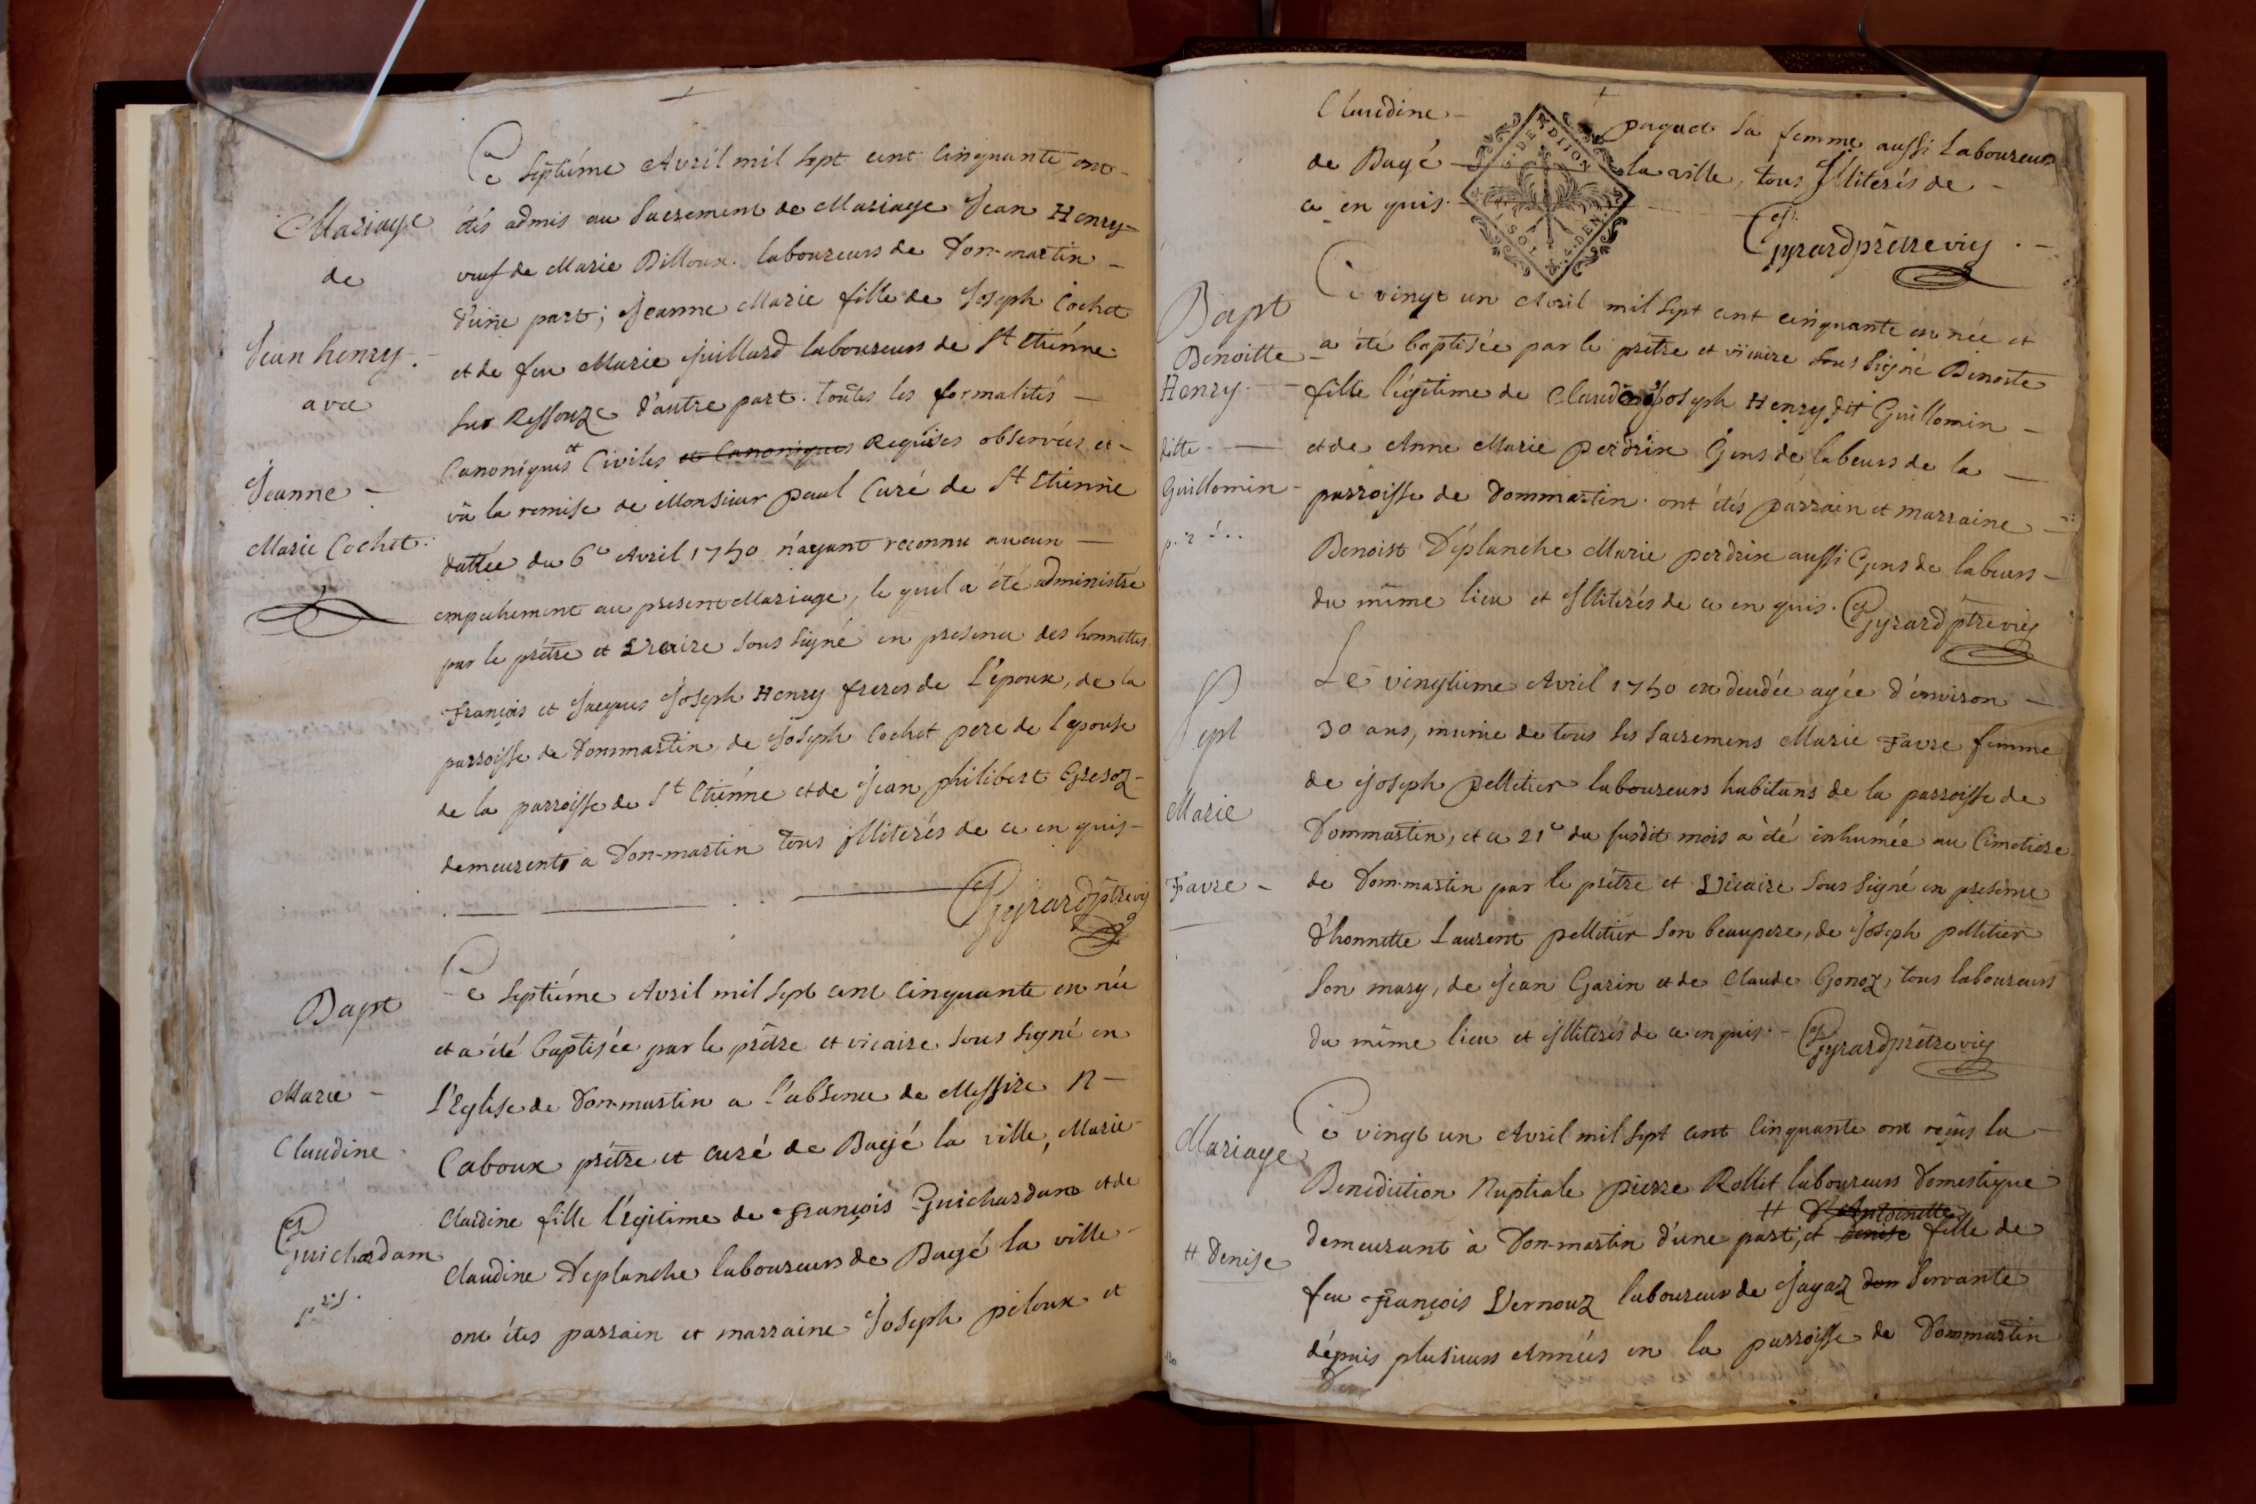 Mariage
de
Jean henry
avec
Jeanne
Marie Cochet
Ce septiéme Avril mil sept cent cinquante, ont
étés admis au Sacrement de Mariage Jean Henry
veuf de Marie Billoux laboureurs de Don-martin
d'une part; Jeanne Marie fille de Joseph Cochet
et de feu Marie Juillard laboureurs de St Etiénne
sur Ressouze d'autre part. toutes les formalités
Canoniques et Civiles et Canoniques Requises observées et
vû la remise de Monsieur paul Curé de St Etiénne
dattée du 6e Avril 1750 n'ayant reconnu aucun
empechement au present Mariage, le quel a été administré
par le prêtre et Vicaire sous signé en presence des honnettes
François et Jacques Joseph Henry freres de L'époux, de la
parroisse de Dommartin, de Joseph Cochet pere de l'epouse
de la parroisse de St Etiénne et de Jean philibert Gresoz
demeurents a Don-martin tous illiterés de ce enquis
Gyrard ptre vic
Bapt
Marie
Claudine
Guichardam
Ce septiéme Avril mil sept cent cinquante en née
et a été baptisée par le prêtre et vicaire sous signé en
L'Eglise de Don-martin a l'absence de Messire N
Caboux prêtre et curé de Bagé la ville, Marie
Claudine fille légitime de François Guichardam et de
Claudine Déplanche laboureurs de Bagé la ville
ont étés parrain et marraine Joseph péloux et
Claudine paquet sa femme aussi laboureurs
de Bagé la ville, tous Illiterés de
ce en quis.
G. DE DIJON
1 SOL 4 DEN
Gyrard prêtre vic
Bapt
Benoitte
Henry
ditte
Guillomin
Ce vingt un Avril mil sept cent cinquante en née et
a été baptisée par le prêtre et vicaire sous signé Benoite
fille légitime de Claude Joseph Henry dit Guillomin
et de Anne Marie perdrix Gens de labeurs de la
parroisse de Dommartin. ont étés parrain et marraine
Benoist Déplanche Marie perdrix aussi Gens de labeurs
du même lieu et Illiterés de ce en quis. Gyrard ptre vic
Sept
Marie
Favre
Le vingtieme Avril 1750 en decedée agée d'environ
30 ans, munie de tous ses sacremens Marie Favre femme
de Joseph pelletier laboureurs habitans de la parroisse de
Dommartin, et ce 21e du susdit mois a été inhumée au Cimetiere
de Dommartin par le prêtre et Vicaire sous signé en presence
d'honnette Laurent pelletier son beaupere, de Joseph pelletier
son mary, de Jean Garin et de Claude Gonoz, tous laboureurs
du même lieu et illiterés de ce enquis. Gyrard prêtre vic
Mariage
# Denise
Ce vingt un Avril mil sept cent cinquante ont reçus la
Benediction Nuptiale pierre Rollet laboureurs Domestique
# D'Antoinette
demeurant à Don-martin d'une part, et Denise fille de
feu François Vernouz laboureur de Jayaz Servante
dépuis plusieurs Années en la parroisse de Dommartin